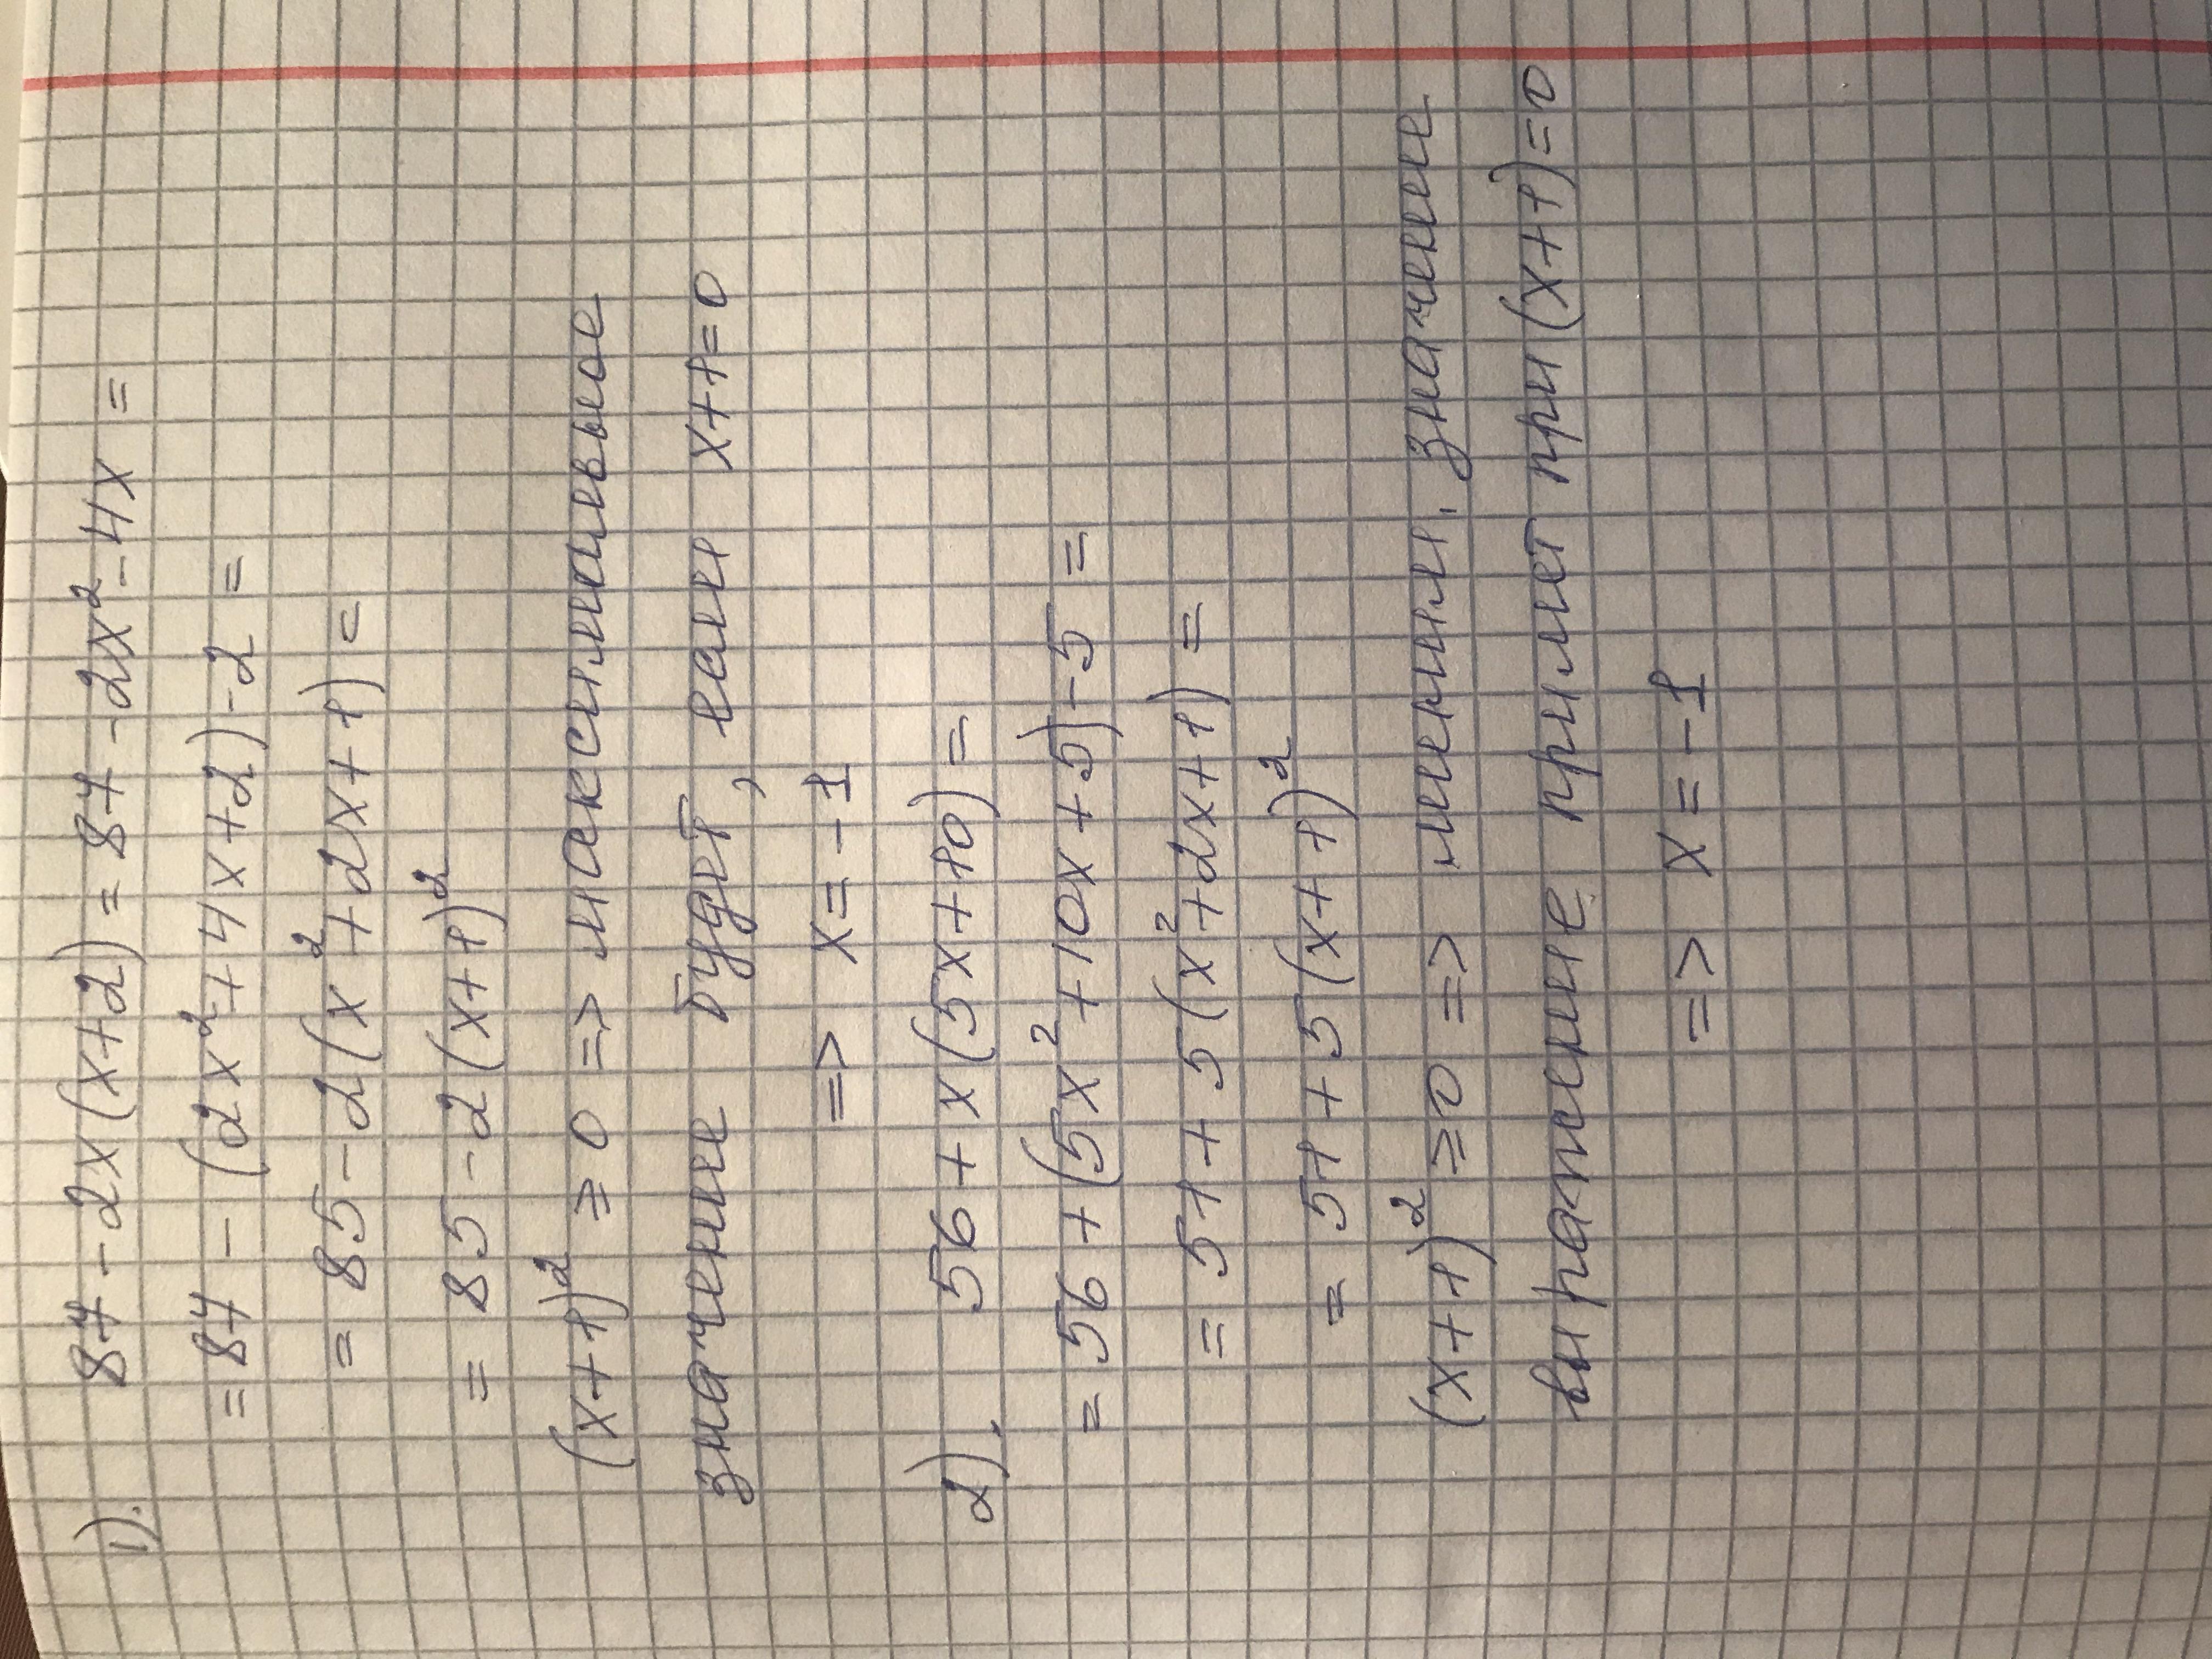 1). 87 - 2x(x+2) = 87 - 2x² - 4x =
= 87 - (2x² + 4x + 2) - 2 =
= 85 - 2(x² + 2x + 1) =
= 85 - 2(x+1)²
(x+1)² ≥ 0 => максимальное
значение будет, если x+1=0
=> x = -1
2). 56 + x(5x+10) =
= 56 + (5x² + 10x + 5) - 5 =
= 51 + 5(x² + 2x + 1) =
= 51 + 5(x+1)²
(x+1)² ≥ 0 => миним. значение
выражение примет при (x+1)=0
=> x = -1